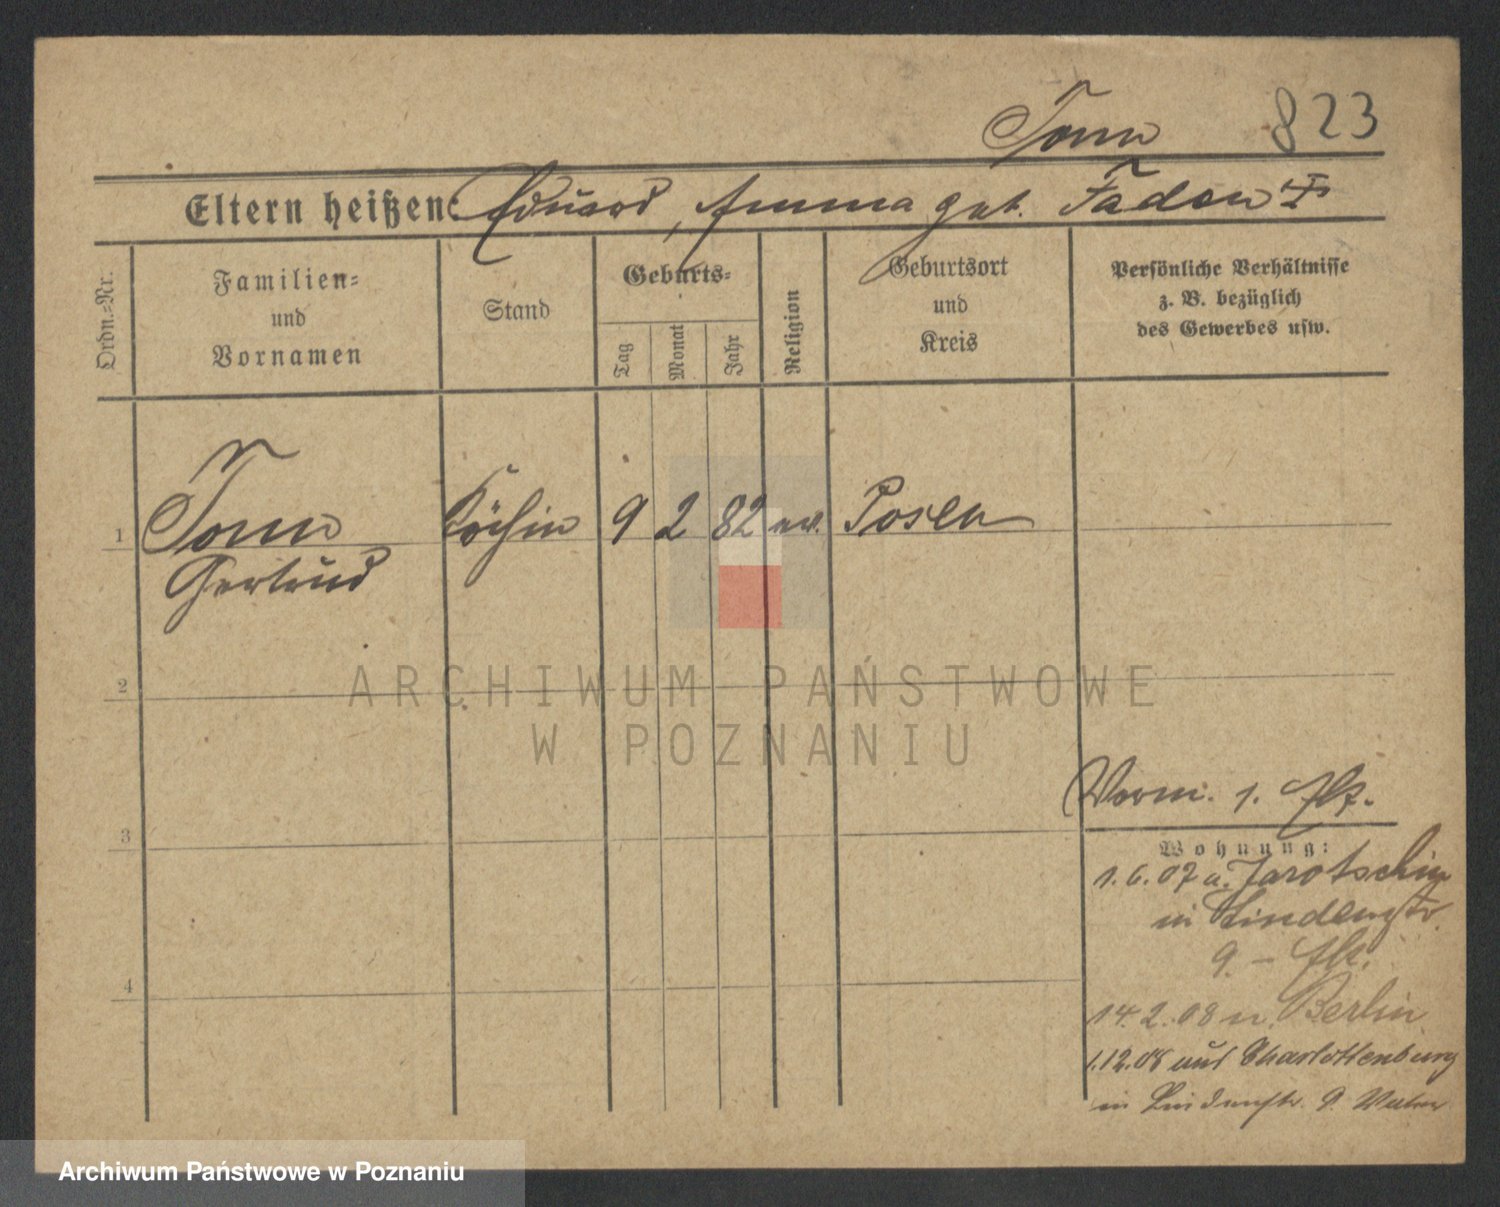 Tonn 823
Eltern heißen: Eduard, Emma geb. Faden
Ordn.=Nr.
Familien=
und
Vornamen
Stand
Geburts=
Tag
Monat
Jahr
Religion
Geburtsort
und
Kreis
Persönliche Verhältnisse
z. B. bezüglich
des Gewerbes usw.
1 Tonn Köchin 9 2 82 ev. Posen
Gertrud
2
ARCHIWUM PAŃSTWOWE
W POZNANIU
Vorm. 1.
3
Wohnung:
1.6.07 a. Jarotschin
in Lindenstr.
9. –
4
14.2.08 n. Berlin
1.12.08 aus Charlottenburg
in Lindenstr. 9.
Archiwum Państwowe w Poznaniu